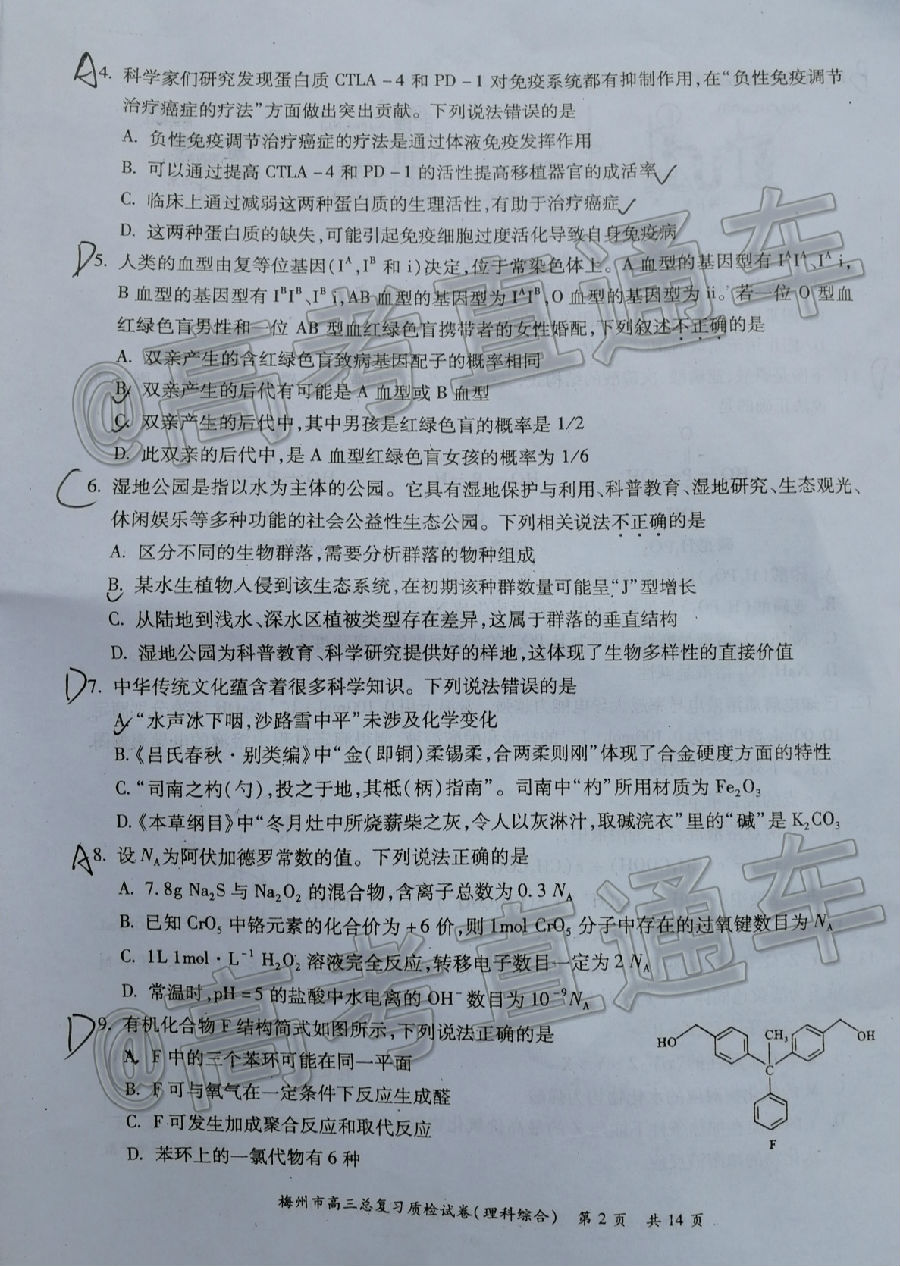 A4. 科学家们研究发现蛋白质 CTLA-4 和 PD-1 对免疫系统都有抑制作用,在“负性免疫调节
治疗癌症的疗法”方面做出突出贡献。下列说法错误的是
A. 负性免疫调节治疗癌症的疗法是通过体液免疫发挥作用
B. 可以通过提高 CTLA-4 和 PD-1 的活性提高移植器官的成活率✓
C. 临床上通过减弱这两种蛋白质的生理活性,有助于治疗癌症✓
D. 这两种蛋白质的缺失,可能引起免疫细胞过度活化导致自身免疫病
D5. 人类的血型由复等位基因(Iᴬ,Iᴮ 和 i)决定,位于常染色体上。A 血型的基因型有 IᴬIᴬ、Iᴬ i,
B 血型的基因型有 IᴮIᴮ、Iᴮ i,AB 血型的基因型为 IᴬIᴮ,O 血型的基因型为 ii。若一位 O 型血
红绿色盲男性和一位 AB 型血红绿色盲携带者的女性婚配,下列叙述不正确的是
A. 双亲产生的含红绿色盲致病基因配子的概率相同
B. 双亲产生的后代有可能是 A 血型或 B 血型
C. 双亲产生的后代中,其中男孩是红绿色盲的概率是 1/2
D. 此双亲的后代中,是 A 血型红绿色盲女孩的概率为 1/6
C6. 湿地公园是指以水为主体的公园。它具有湿地保护与利用、科普教育、湿地研究、生态观光、
休闲娱乐等多种功能的社会公益性生态公园。下列相关说法不正确的是
A. 区分不同的生物群落,需要分析群落的物种组成
B. 某水生植物入侵到该生态系统,在初期该种群数量可能呈“J”型增长
C. 从陆地到浅水、深水区植被类型存在差异,这属于群落的垂直结构
D. 湿地公园为科普教育、科学研究提供好的样地,这体现了生物多样性的直接价值
D7. 中华传统文化蕴含着很多科学知识。下列说法错误的是
A.“水声冰下咽,沙路雪中平”未涉及化学变化
B.《吕氏春秋·别类编》中“金(即铜)柔锡柔,合两柔则刚”体现了合金硬度方面的特性
C.“司南之杓(勺),投之于地,其柢(柄)指南”。司南中“杓”所用材质为 Fe₂O₃
D.《本草纲目》中“冬月灶中所烧薪柴之灰,令人以灰淋汁,取碱浣衣”里的“碱”是 K₂CO₃
A8. 设 Nᴀ为阿伏加德罗常数的值。下列说法正确的是
A. 7.8g Na₂S 与 Na₂O₂ 的混合物,含离子总数为 0.3 Nᴀ
B. 已知 CrO₅ 中铬元素的化合价为 +6 价,则 1mol CrO₅ 分子中存在的过氧键数目为 Nᴀ
C. 1L 1mol·L⁻¹ H₂O₂ 溶液完全反应,转移电子数目一定为 2 Nᴀ
D. 常温时,pH=5 的盐酸中水电离的 OH⁻ 数目为 10⁻⁹Nᴀ
D9. 有机化合物 F 结构简式如图所示,下列说法正确的是
A. F 中的三个苯环可能在同一平面
B. F 可与氧气在一定条件下反应生成醛
C. F 可发生加成聚合反应和取代反应
D. 苯环上的一氯代物有 6 种
HO CH₃ OH
C
F
梅州市高三总复习质检试卷(理科综合) 第 2 页 共 14 页
@高考直通车
@高考直通车